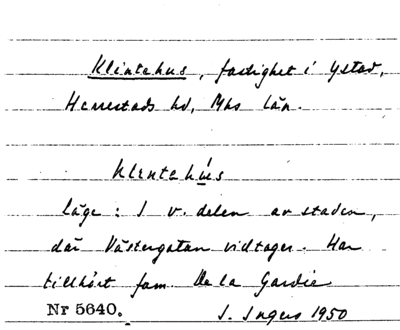 Klintehus, fastighet i Ystad,
Herrestads hd, Mhs län.
Klentehús
läge: I v. delen av staden,
där Västergatan vidtager. Har
tillhört fam. De la Gardie
Nr 5640. I. Ingers 1950